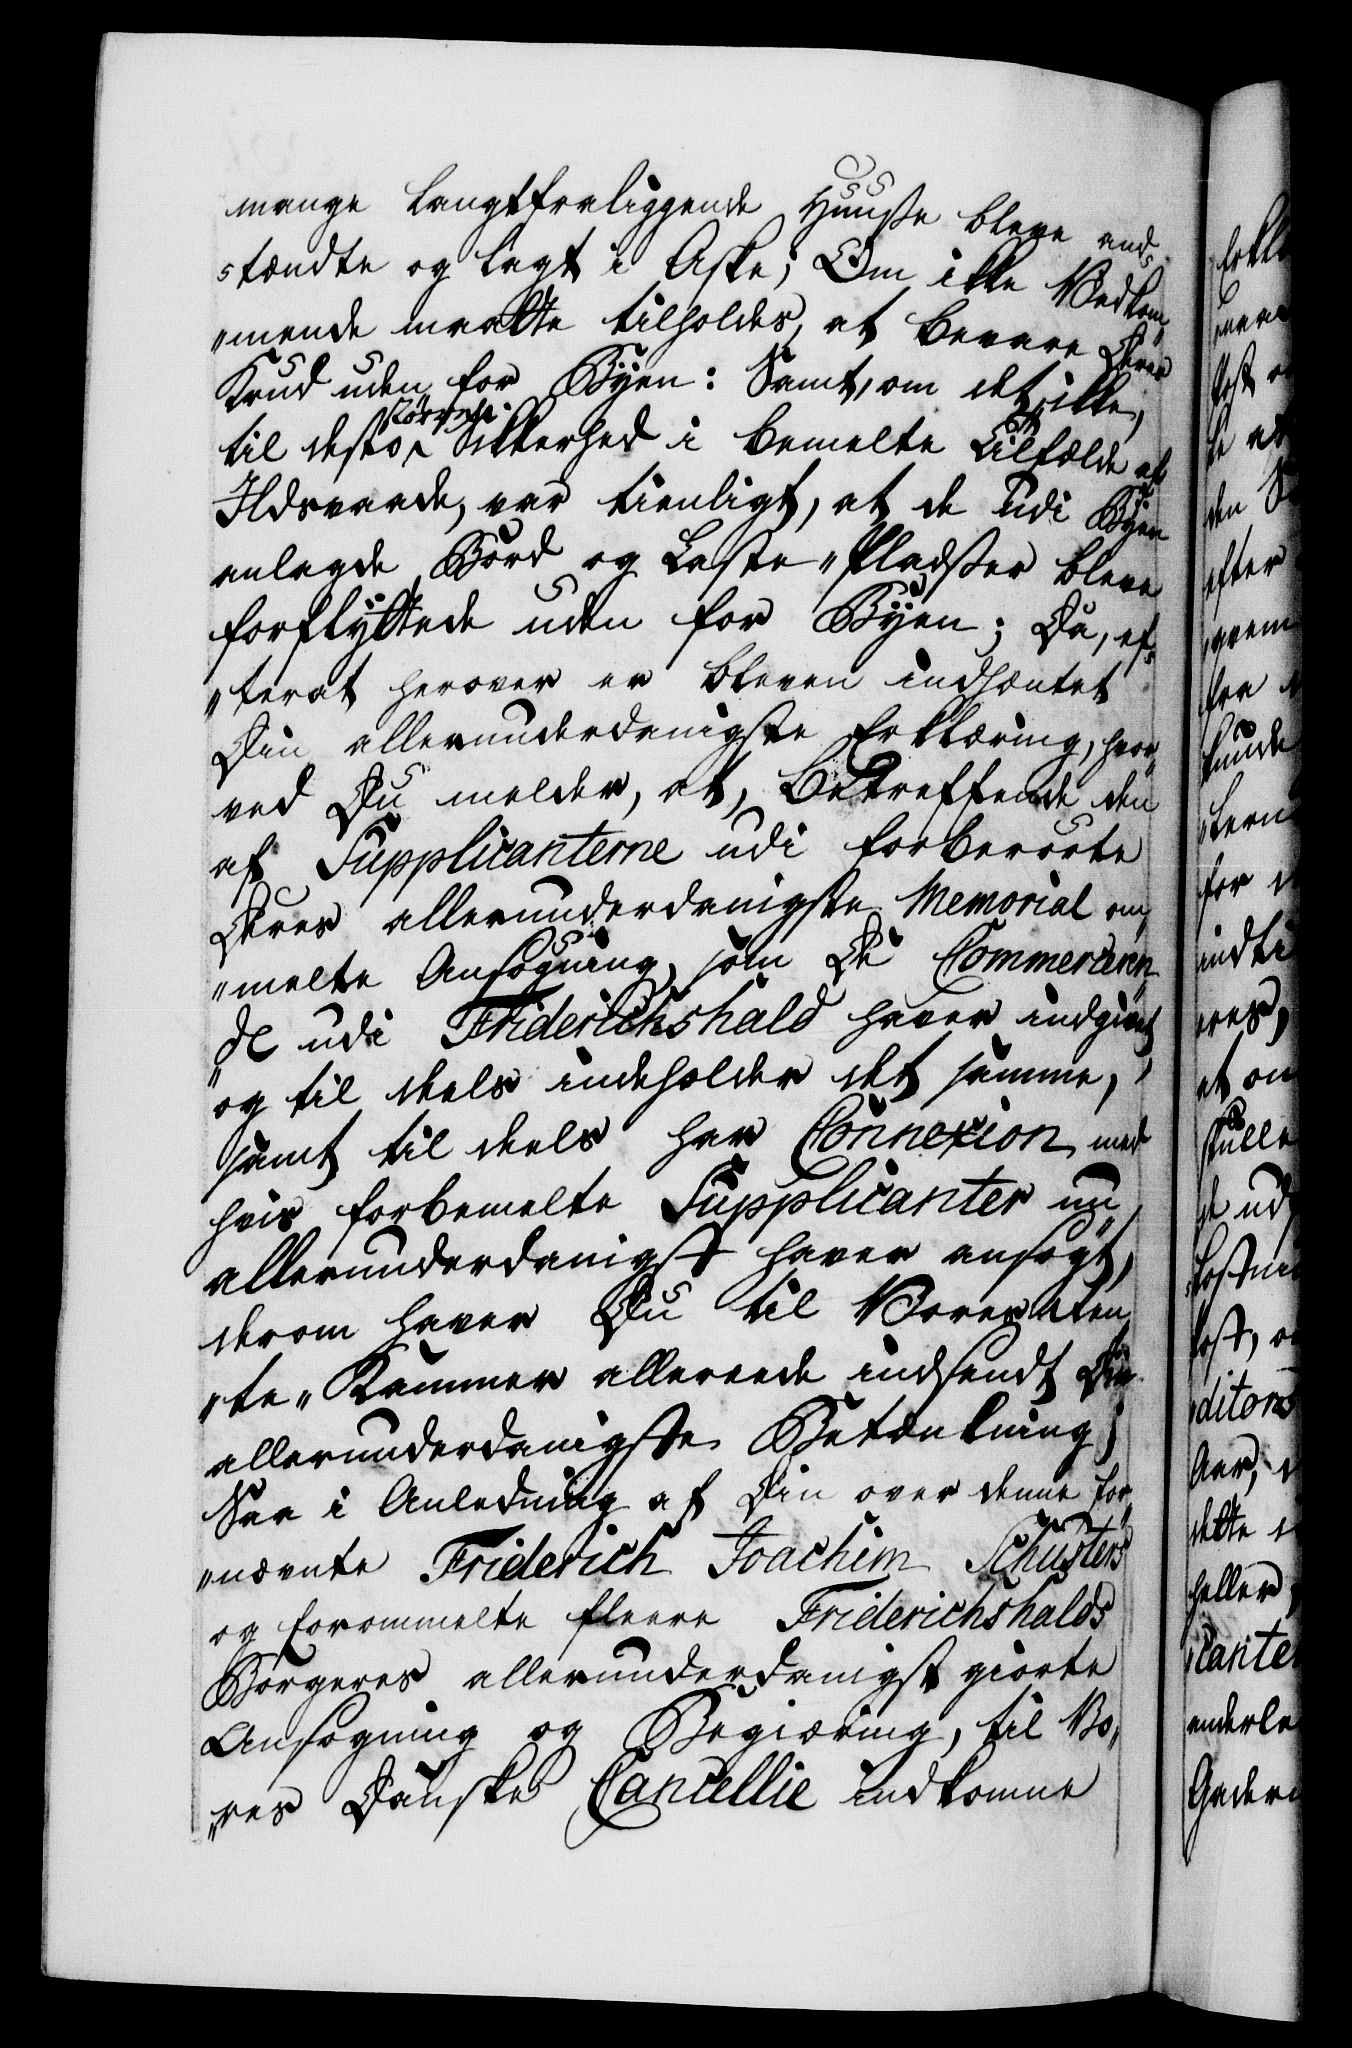 mange langtfraliggende Huuse bleve and-
-tændte og lagt i Aske; Om ikke Vedkom-
"mende maatte tilholdes, at bevare Deres
Krud uden for Byen: Samt, om det ikke,
til desto større Sikkerhed i bemelte Tilfælde af
Ildsvaade, var tienligt, at de udi Byen
anlagde Bord og Laste-Pladser bleve
forflyttede uden for Byen; Da, ef-
"terat herover er bleven indhæntet
Din allerunderdanigste Erklæring, hvor-
ved Du melder, at, betreffende den
af Supplicanterne udi forberørte
Deres allerunderdanigste Memorial om-
"melte Ansøgning, som De Commercieren-
"de udi Friderichshald haver indgivet,
og til deels indeholder det samme,
samt til deels har Connexion med
hvis forbemelte Supplicanter nu
allerunderdanigst haver ansøgt,
derom haver Du til Vores Rente-
"te-Kammer allereede indsendt Din
allerunderdanigste Betænkning;
Saa i Anledning af Din over denne for-
"nævnte Friderich Joachim Schusters
og forommelte fleere Friderichshalds
Borgeres allerunderdanigst giorte
Ansøgning og Begiæring, til Vo-
"res Danske Cancellie indkomne